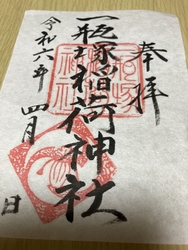 奉拝
一瓶塚稲荷神社
令和六年 四月 日